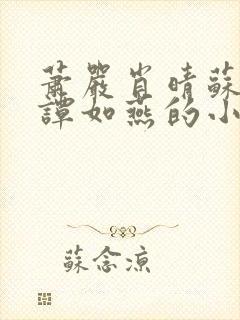 蕭嚴肖晴蘇
譚如燕的小
蘇念涼